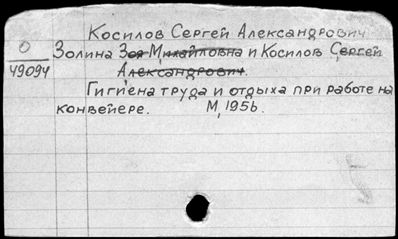 Косилов Сергей Александрович
О
49094
Золина Зоя Михайловна и Косилов Сергей
Александрович.
Гигиена труда и отдыха при работе на
конвейере. М, 1956.